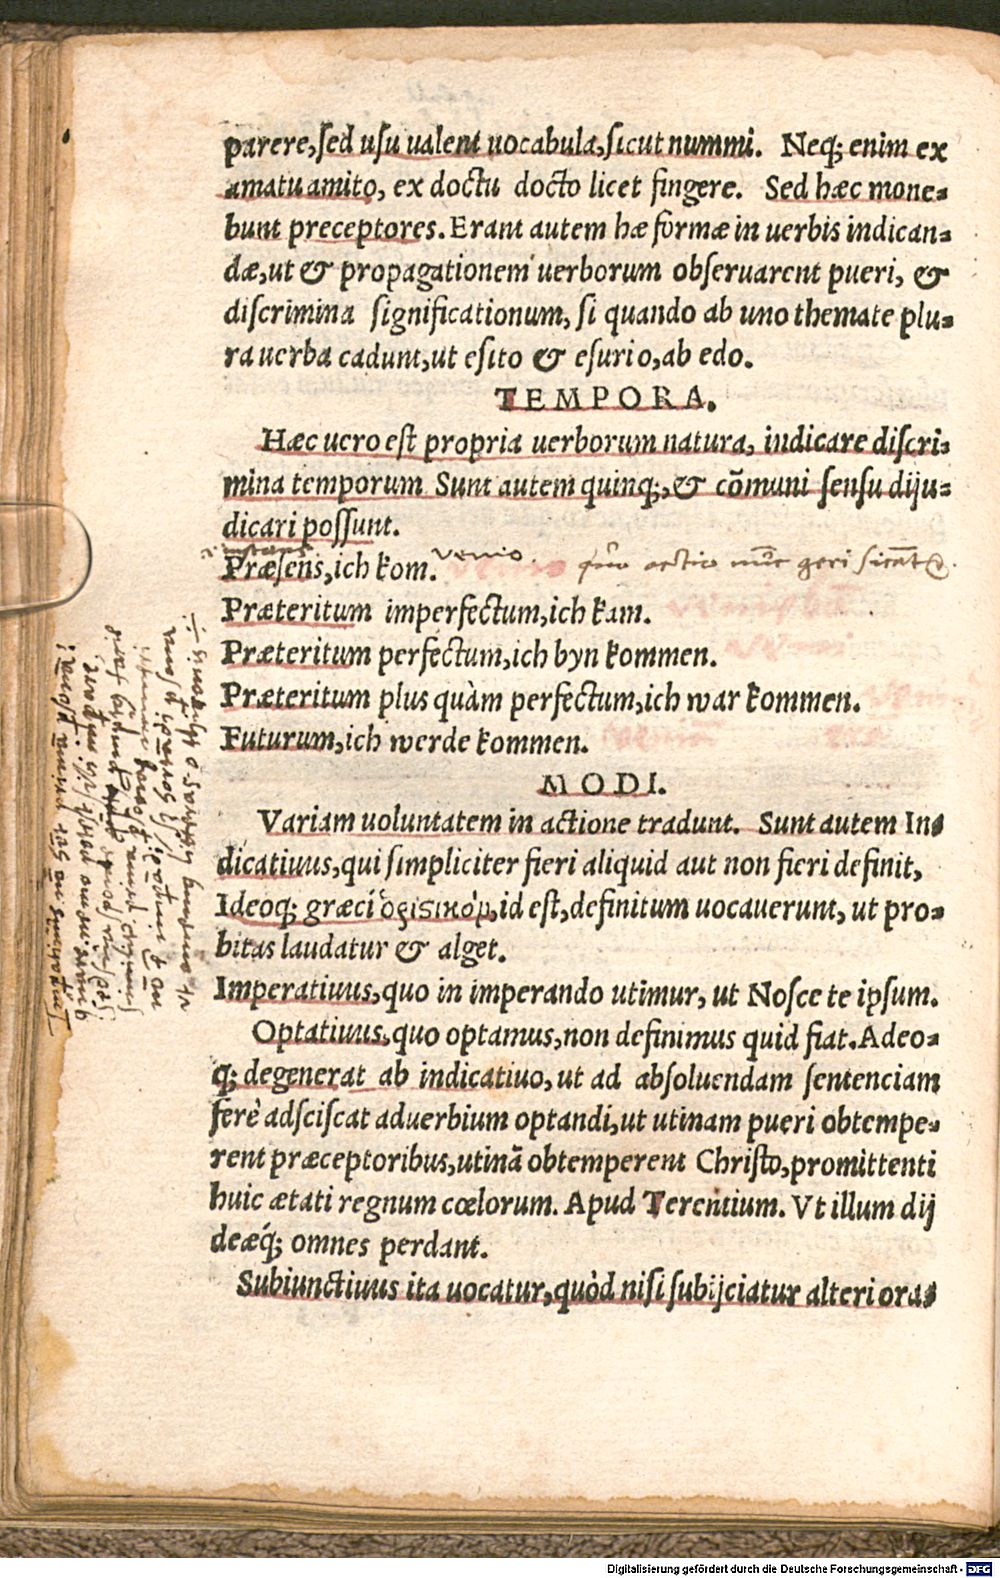 parere, sed usu ualent uocabula, sicut nummi. Neq; enim ex
amatu amito, ex doctu docto licet fingere. Sed hæc mone-
bunt preceptores. Erant autem hæ formæ in uerbis indican-
dæ, ut & propagationem uerborum obseruarent pueri, &
discrimina significationum, si quando ab uno themate plu-
ra uerba cadunt, ut esito & esurio, ab edo.
TEMPORA.
Hæc uero est propria uerborum natura, indicare discri-
mina temporum Sunt autem quinq;, & cōmuni sensu diju-
dicari possunt.
instans venio
Præsens, ich kom.
Præteritum imperfectum, ich kam.
Præteritum perfectum, ich byn kommen.
Præteritum plus quàm perfectum, ich war kommen.
Futurum, ich werde kommen.
MODI.
Variam uoluntatem in actione tradunt. Sunt autem In-
dicatiuus, qui simpliciter fieri aliquid aut non fieri definit,
Ideoq; græci ὁριςικὸμ, id est, definitum uocauerunt, ut pro-
bitas laudatur & alget.
Imperatiuus, quo in imperando utimur, ut Nosce te ipsum.
Optatiuus, quo optamus, non definimus quid fiat. Adeo-
q; degenerat ab indicatiuo, ut ad absoluendam sentenciam
ferè adsciscat aduerbium optandi, ut utinam pueri obtempe-
rent præceptoribus, utinā obtemperent Christo, promittenti
huic ætati regnum cœlorum. Apud Terentium. Vt illum dij
deæq́; omnes perdant.
Subiunctiuus ita uocatur, quòd nisi subijciatur alteri ora-
Digitalisierung gefördert durch die Deutsche Forschungsgemeinschaft - DFG